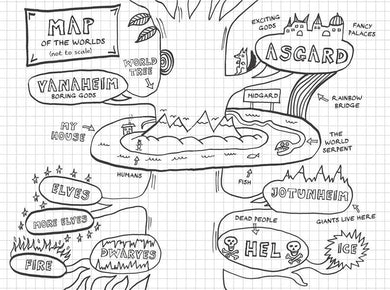 MAP
OF THE WORLDS
(not to scale)
EXCITING
GODS
FANCY
PALACES
ASGARD
WORLD
TREE
VANAHEIM
BORING GODS
MIDGARD
RAINBOW
BRIDGE
MY
HOUSE
THE
WORLD
SERPENT
HUMANS
FISH
ELVES
JOTUNHEIM
MORE ELVES
GIANTS LIVE HERE
DEAD PEOPLE
HEL
ICE
FIRE
DWARVES